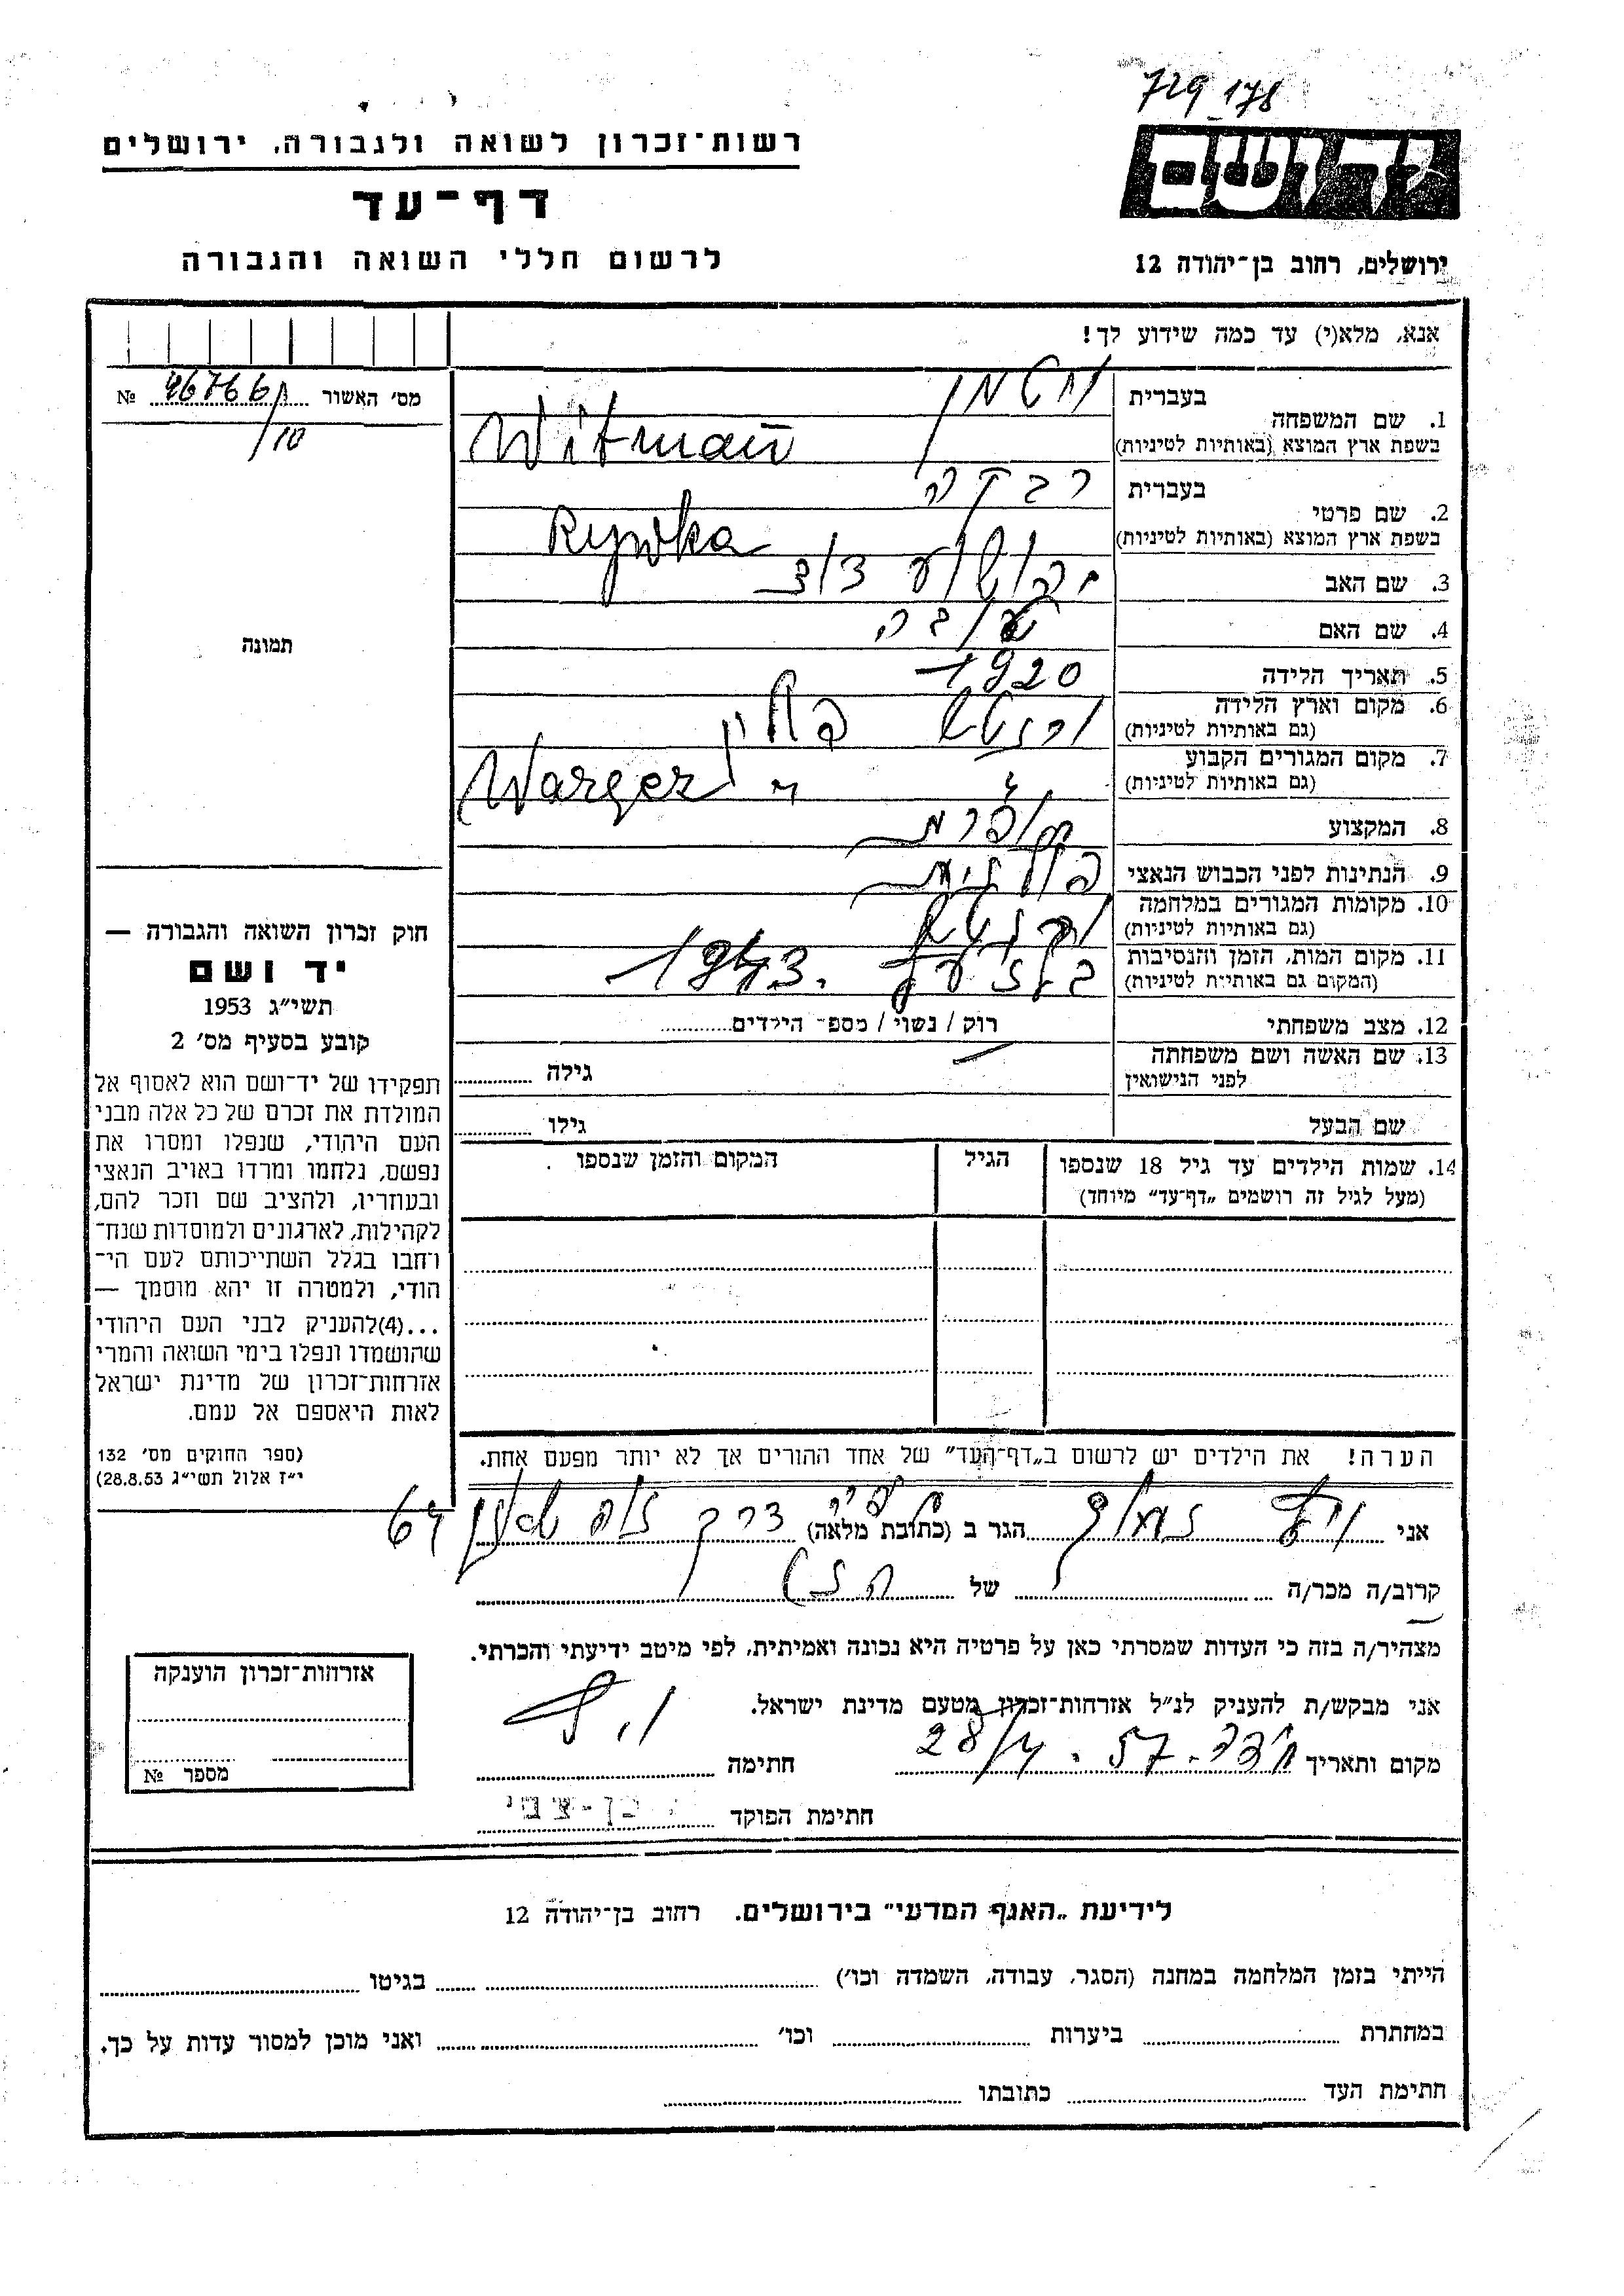 729 178
רשות־זכרון לשואה ולגבורה, ירושלים
יד ושם
דף־עד
לרשום חללי השואה והגבורה
ירושלים, רחוב בן־יהודה 12
אנא, מלא(י) עד כמה שידוע לך!
מס׳ האשור № 46766
/10
תמונה
1. שם המשפחה
בעברית ויטמן
בשפת ארץ המוצא (באותיות לטיניות) Witman
2. שם פרטי
בעברית רבקה
בשפת ארץ המוצא (באותיות לטיניות) Rywka
3. שם האב יהושע דוד
4. שם האם
5. תאריך הלידה 1920
6. מקום וארץ הלידה
(גם באותיות לטיניות) פולין
7. מקום המגורים הקבוע
(גם באותיות לטיניות) " Wargez
8. המקצוע תופרת
9. הנתינות לפני הכבוש הנאצי פולנית
10. מקומות המגורים במלחמה
(גם באותיות לטיניות)
11. מקום המות, הזמן והנסיבות
(המקום גם באותיות לטיניות) בלזעץ 1943.
12. מצב משפחתי רוק / נשוי / מספר הילדים
13. שם האשה ושם משפחתה
לפני הנישואין גילה
שם הבעל גילו
14. שמות הילדים עד גיל 18 שנספו
(מעל לגיל זה רושמים „דף־עד״ מיוחד)
הגיל
המקום והזמן שנספו
חוק זכרון השואה והגבורה —
יד ושם
תשי״ג 1953
קובע בסעיף מס׳ 2
תפקידו של יד־ושם הוא לאסוף אל
המולדת את זכרם של כל אלה מבני
העם היהודי, שנפלו ומסרו את
נפשם, נלחמו ומרדו באויב הנאצי
ובעוזריו, ולהציב שם וזכר להם,
לקהילות, לארגונים ולמוסדות שנח־
רחבו בגלל השתייכותם לעם הי־
הודי, ולמטרה זו יהא מוסמך —
...(4)להעניק לבני העם היהודי
שהושמדו ונפלו בימי השואה והמרי
אזרחות־זכרון של מדינת ישראל
לאות היאספם אל עמם.
(ספר החוקים מס׳ 132
י״ז אלול תשי״ג 28.8.53)
הערה! את הילדים יש לרשום ב„דף־העד״ של אחד ההורים אך לא יותר מפעם אחת.
אני הגר ב (כתובת מלאה) דרך 64
קרוב/ה מכר/ה של הנ״ל
מצהיר/ה בזה כי העדות שמסרתי כאן על פרטיה היא נכונה ואמיתית, לפי מיטב ידיעתי והכרתי.
אני מבקש/ת להעניק לנ״ל אזרחות־זכרון מטעם מדינת ישראל.
מקום ותאריך 28/4.57 חתימה
חתימת הפוקד בן-צבי
אזרחות־זכרון הוענקה
מספר №
לידיעת „האגף המדעי״ בירושלים. רחוב בן־יהודה 12
הייתי בזמן המלחמה במחנה (הסגר, עבודה, השמדה וכו׳) בגיטו
במחתרת ביערות וכו׳ ואני מוכן למסור עדות על כך.
חתימת העד כתובתו